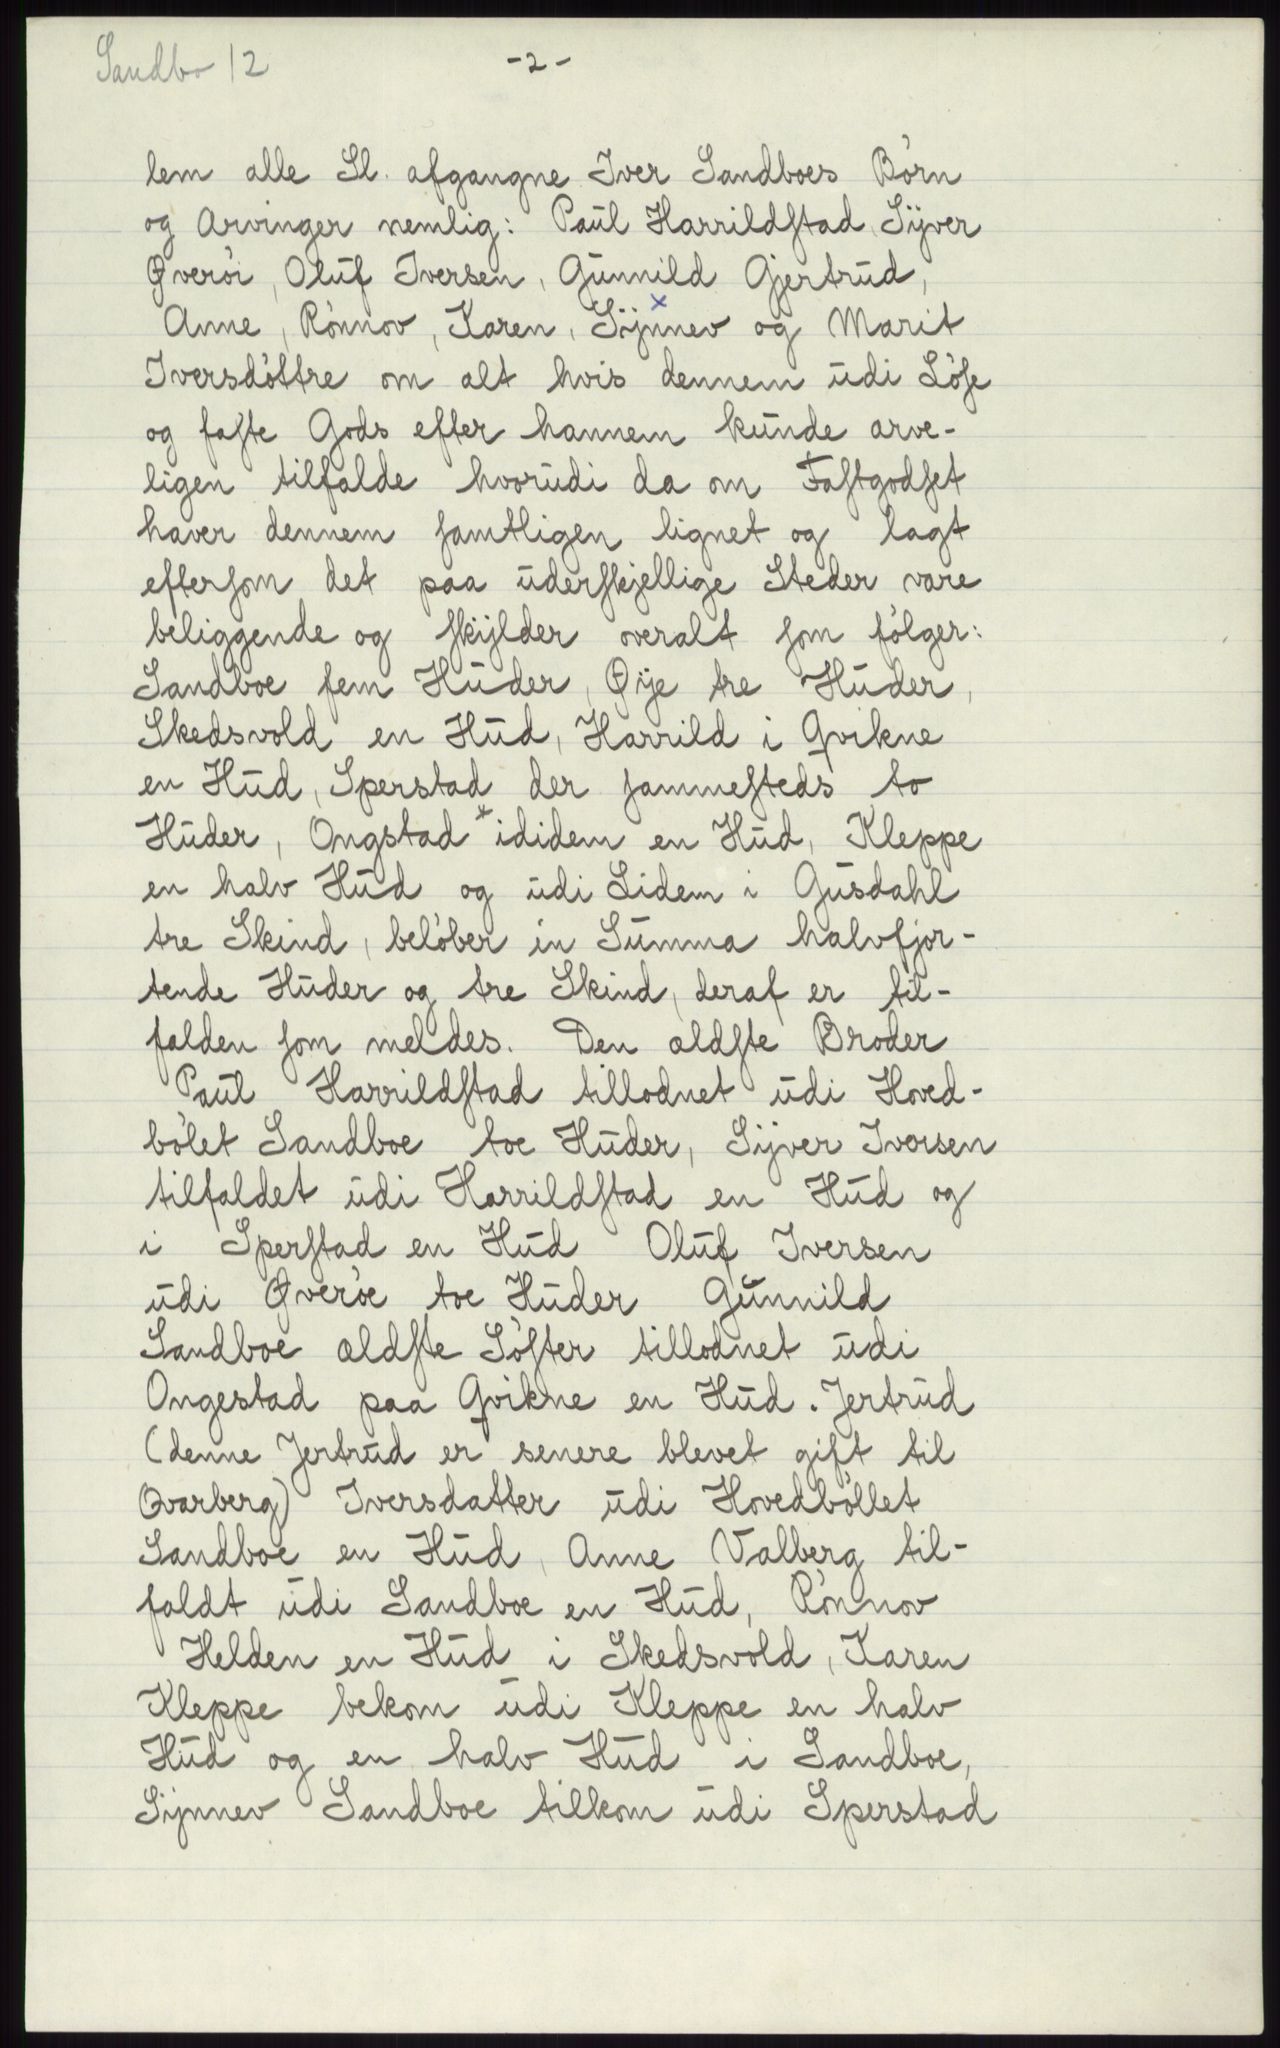 Sandbo 12
-2-
lem alle Sl. afgangne Iver Sandboes Börn
og Arvinger nemlig: Paul Harrildstad, Sÿver
Øveröi, Oluf Iversen, Gunnild Gjertrud,
Anne, Rönnov, Karen, Sÿnnev x og Marit
Iversdöttre om alt hvis dennem udi Löse
og faste Gods efter hannem kunde arve-
ligen tilfalde hvorudi da om Fastgodset
haver dennem samtligen lignet og lagt
eftersom det paa uderskjellige Steder vare
beliggende og skÿlder overalt som fölger:
Sandboe fem Huder, Øÿe tre Huder,
Skedsvold en Hud, Harrild i Qvikne
en Hud, Sperstad der sammesteds to
Huder, Ongstad x ididem en Hud, Kleppe
en halv Hud og udi Lidem i Gusdahl
tre Skind, belöber in Summa halvfjor-
tende Huder og tre Skind, deraf er til-
falden som meldes. Den ældste Broder
Paul Harrildstad tillodnet udi Hoved-
bölet Sandboe toe Huder, Sÿver Iversen
tilfaldet udi Harrildstad en Hud og
i Sperstad en Hud Oluf Iversen
udi Øveröe toe Huder Gunnild
Sandboe ældste Söster tillodnet udi
Ongestad paa Qvikne en Hud. Jertrud
(denne Jertrud er senere blevet gift til
Qvarberg) Iversdatter udi Hovedböllet
Sandboe en Hud, Anne Valberg til-
faldt udi Sandboe en Hud, Rönnov
Helden en Hud i Skedsvold, Karen
Kleppe bekom udi Kleppe en halv
Hud og en halv Hud i Sandboe,
Sÿnnev Sandboe tilkom udi Sperstad